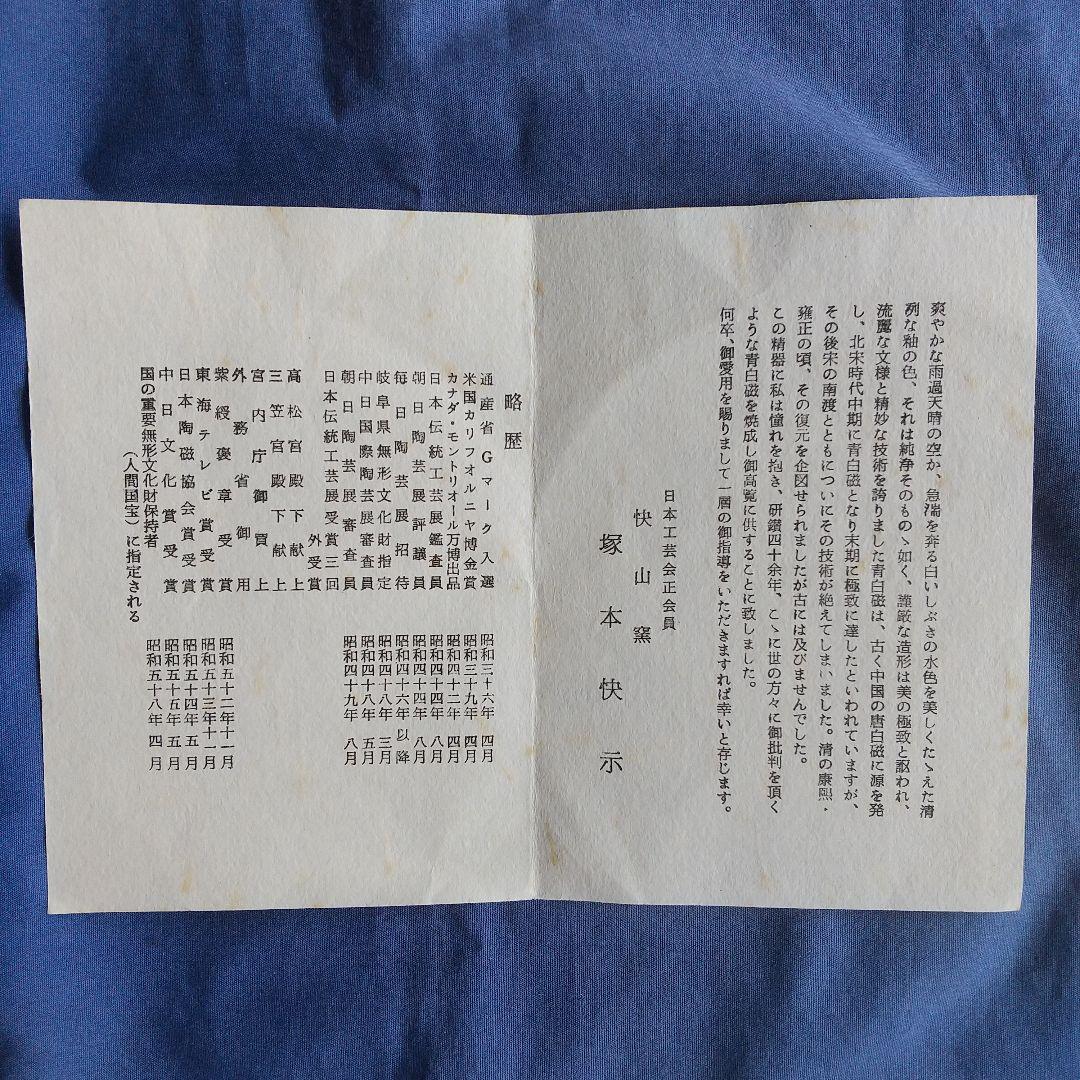 爽やかな雨過天晴の空か、急湍を奔る白いしぶきの水色を美しくたゝえた清
冽な釉の色、それは純浄そのものゝ如く、謹厳な造形は美の極致と謳われ、
流麗な文様と精妙な技術を誇りました青白磁は、古く中国の唐白磁に源を発
し、北宋時代中期に青白磁となり末期に極致に達したといわれていますが、
その後宋の南渡とともについにその技術が絶えてしまいました。清の康熙・
雍正の頃、その復元を企図せられましたが古には及びませんでした。
この精器に私は憧れを抱き、研鑽四十余年、こゝに世の方々に御批判を頂く
ような青白磁を焼成し御高覧に供することに致しました。
何卒、御愛用を賜りまして一層の御指導をいただきますれば幸いと存じます。
日本工芸会正会員
快山窯
塚本快示
略歴
通産省Gマーク入選 昭和三十六年 四月
米国カリフオルニヤ博金賞 昭和三十九年 四月
カナダ・モントリオール万博出品 昭和四十二年 四月
日本伝統工芸展鑑査員 昭和四十四年 八月
朝日陶芸展評議員 昭和四十四年 八月
毎日陶芸展招待 昭和四十六年 以降
岐阜県無形文化財指定 昭和四十八年 三月
中日国際陶芸展審査員 昭和四十八年 五月
朝日陶芸展審査員 昭和四十九年 八月
日本伝統工芸展受賞三回
外受賞
高松宮殿下献上
三笠宮殿下献上
宮内庁御買上
外務省御用
紫綬褒章受賞 昭和五十二年十一月
東海テレビ賞受賞 昭和五十三年十一月
日本陶磁協会賞受賞 昭和五十四年 五月
中日文化賞受賞 昭和五十五年 五月
国の重要無形文化財保持者 昭和五十八年 四月
(人間国宝)に指定される